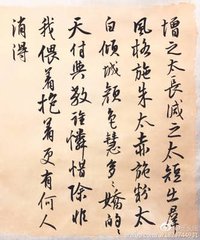 增之太長減之太短出羣
風格施朱太赤施粉太
白傾城顏色慧多々嬌的々
天付與教誰憐惜除非
我偎着抱着更有何人
消得